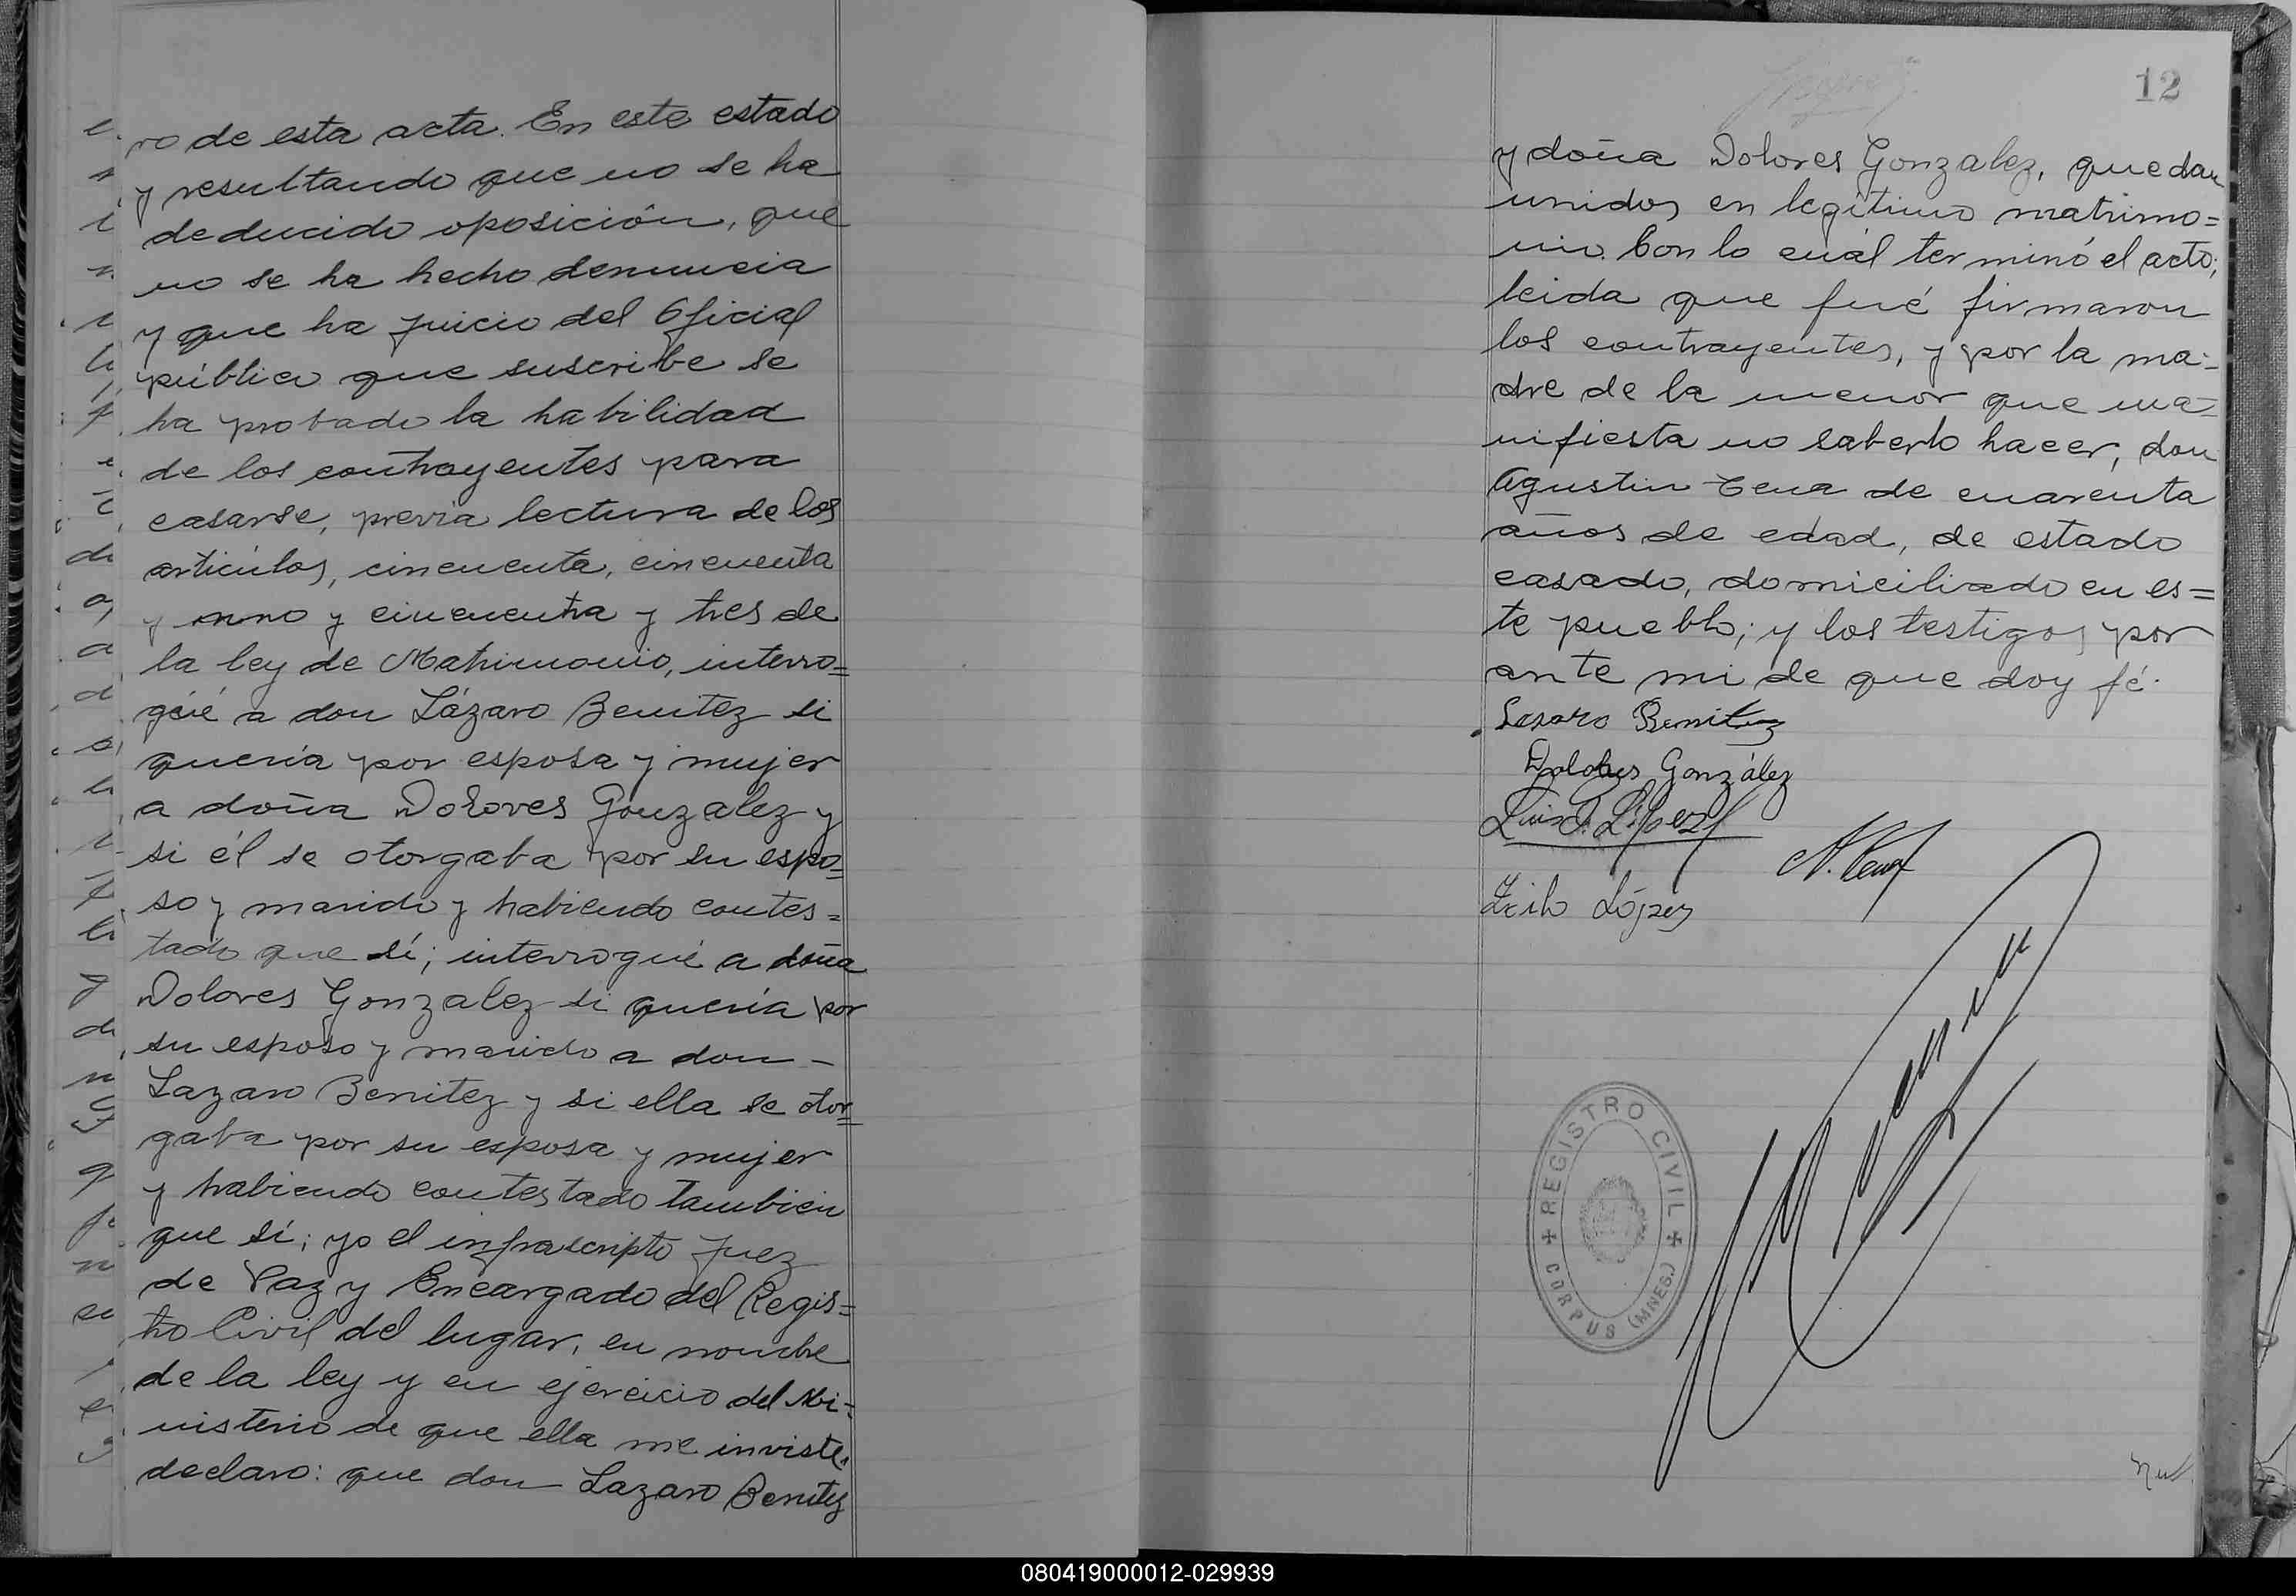 ro de esta acta. En este estado
y resultando que no se ha
deducido oposición, que
no se ha hecho denuncia
y que ha juicio del Oficial
público que suscribe se
ha probado la habilidad
de los contrayentes para
casarse, previa lectura de los
artículos, cincuenta, cincuenta
y uno y cincuenta y tres de
la ley de Matrimonio, interro=
güé a don Lázaro Benitez si
quería por esposa y mujer
a doña Dolores Gonzalez y
si él se otorgaba por su espo=
so y marido y habiendo contes=
tado que sí; interrogué a doña
Dolores Gonzalez si quería por
su esposo y marido a don -
Lazaro Benitez y si ella se otor=
gaba por su esposa y mujer
y habiendo contestado tambien
que sí; yo el infrascripto Juez
de Paz y Encargado del Regis=
tro Civil del lugar, en nombre
de la ley y en ejercicio del Mi=
nisterio de que ella me inviste,
declaro: que don Lazaro Benitez
12
y doña Dolores Gonzalez, quedan
unidos en legítimo matrimo=
nio. Con lo cuál terminó el acto;
leida que fué firmaron
los contrayentes, y por la ma=
dre de la menor que ma=
nifiesta no saberlo hacer, don
Agustin Cena de cuarenta
años de edad, de estado
casado, domiciliado en es=
te pueblo; y los testigos por
ante mi de que doy fé.
Lasaro Benitez
Dolores González
Luis J. López
A. Cena
López
REGISTRO CIVIL
CORPUS (MNES.)
080419000012-029939